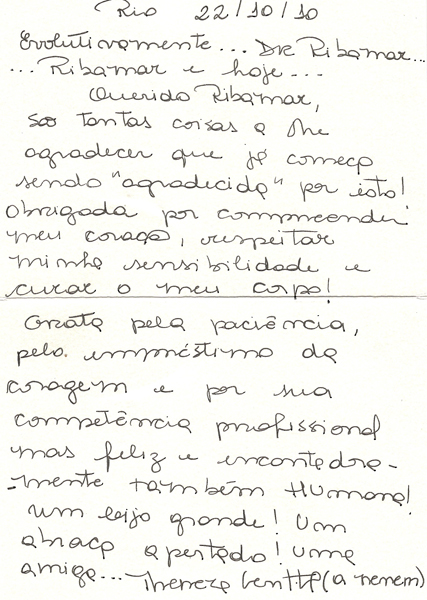 Rio 22/10/10
Evolutivamente... Dr. Ribamar...
... Ribamar e hoje...
Querido Ribamar,
São tantas coisas a lhe
agradecer que já começo
sendo "agradecida" por isto!
Obrigada por compreender
meu coração, respeitar
minha sensibilidade e
curar o meu corpo!
Grata pela paciência,
pelo empréstimo da
coragem e por sua
competência profissional
mas feliz e encantadora-
-mente também Humana!
Um beijo grande! Um
abraço apertado! uma
amiga... (a nenem)